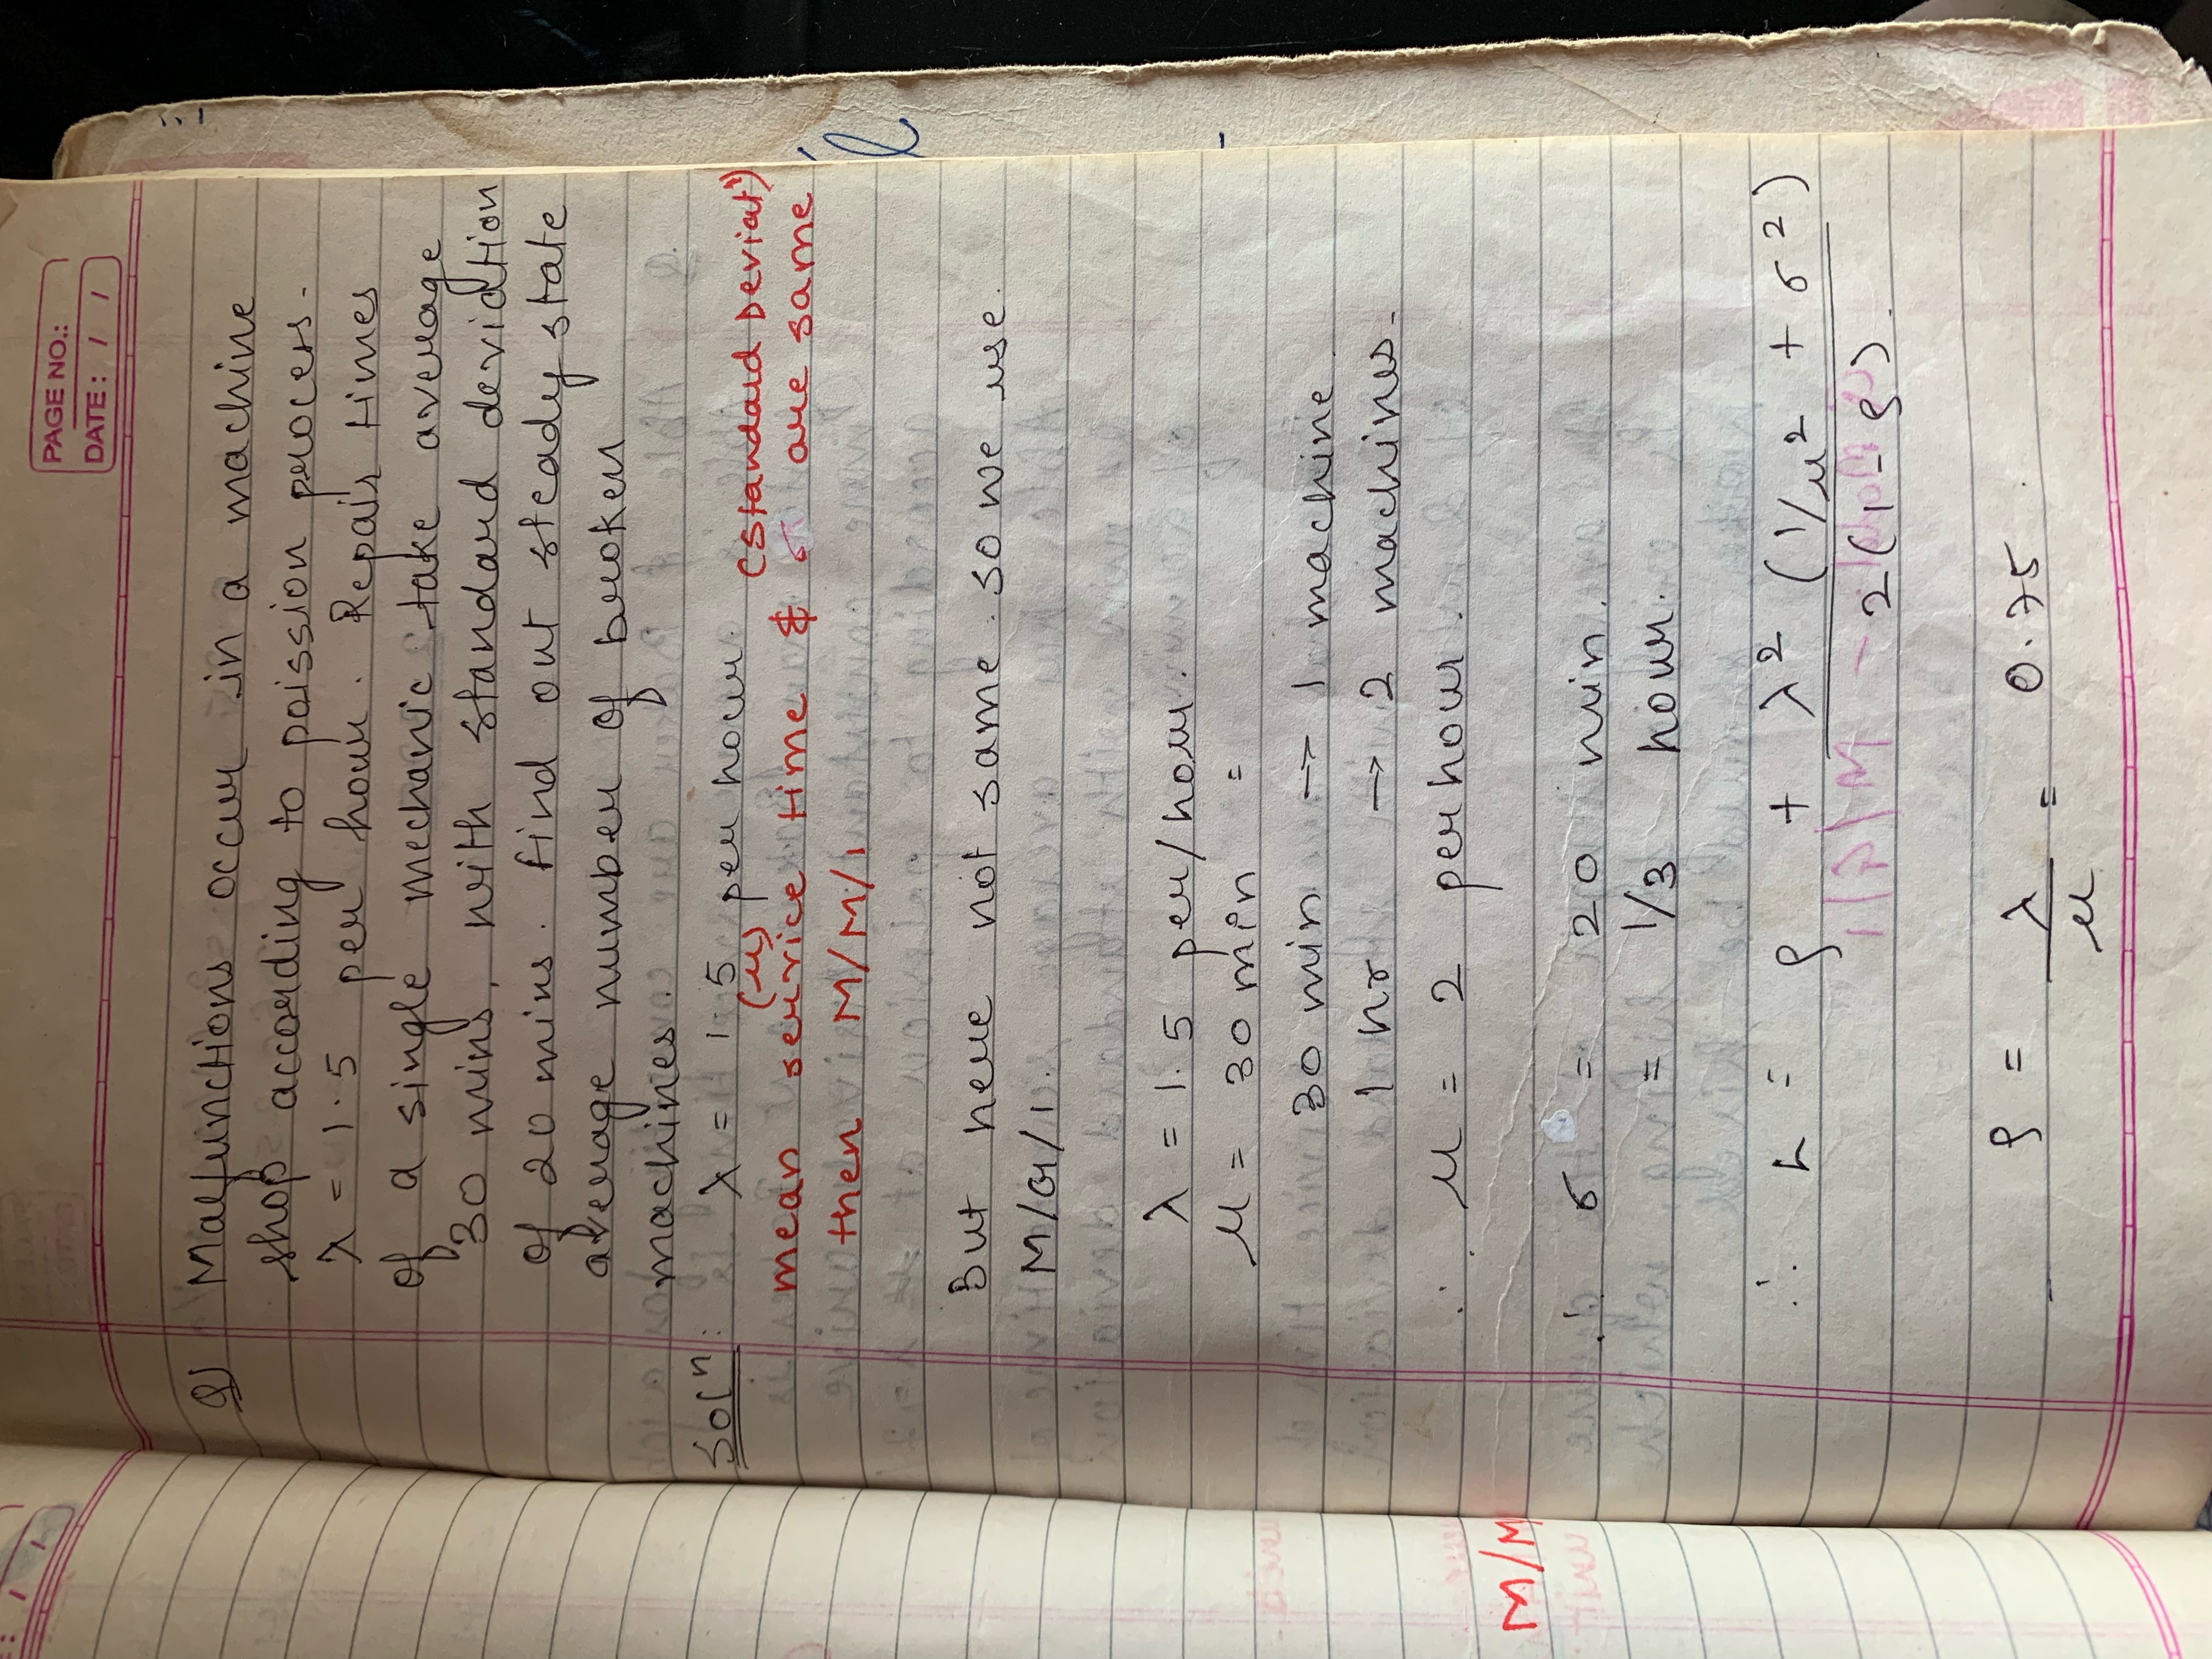 PAGE NO.:
DATE: / /
Q) Malfunctions occur in a machine
shop according to poission process.
λ = 1.5 per hour. Repair times
of a single mechanic take average
30 mins, with standard deviation
of 20 mins. find out steady state
average number of broken
machines.
Solⁿ: λ = 1.5 per hour.
(μ) (Standard Deviatⁿ)
mean service time & σ are same
then M/M/1
But here not same. so we use.
M/G/1.
λ = 1.5 per/hour.
μ = 30 min =
30 min → 1 machine.
1 hr → 2 machines.
∴ μ = 2 per hour.
M/M
∴ σ = 20 min.
= 1/3 hour.
∴ L = ρ + λ² (1/μ² + σ²)
2(1 - ρ).
ρ = λ/μ = 0.75